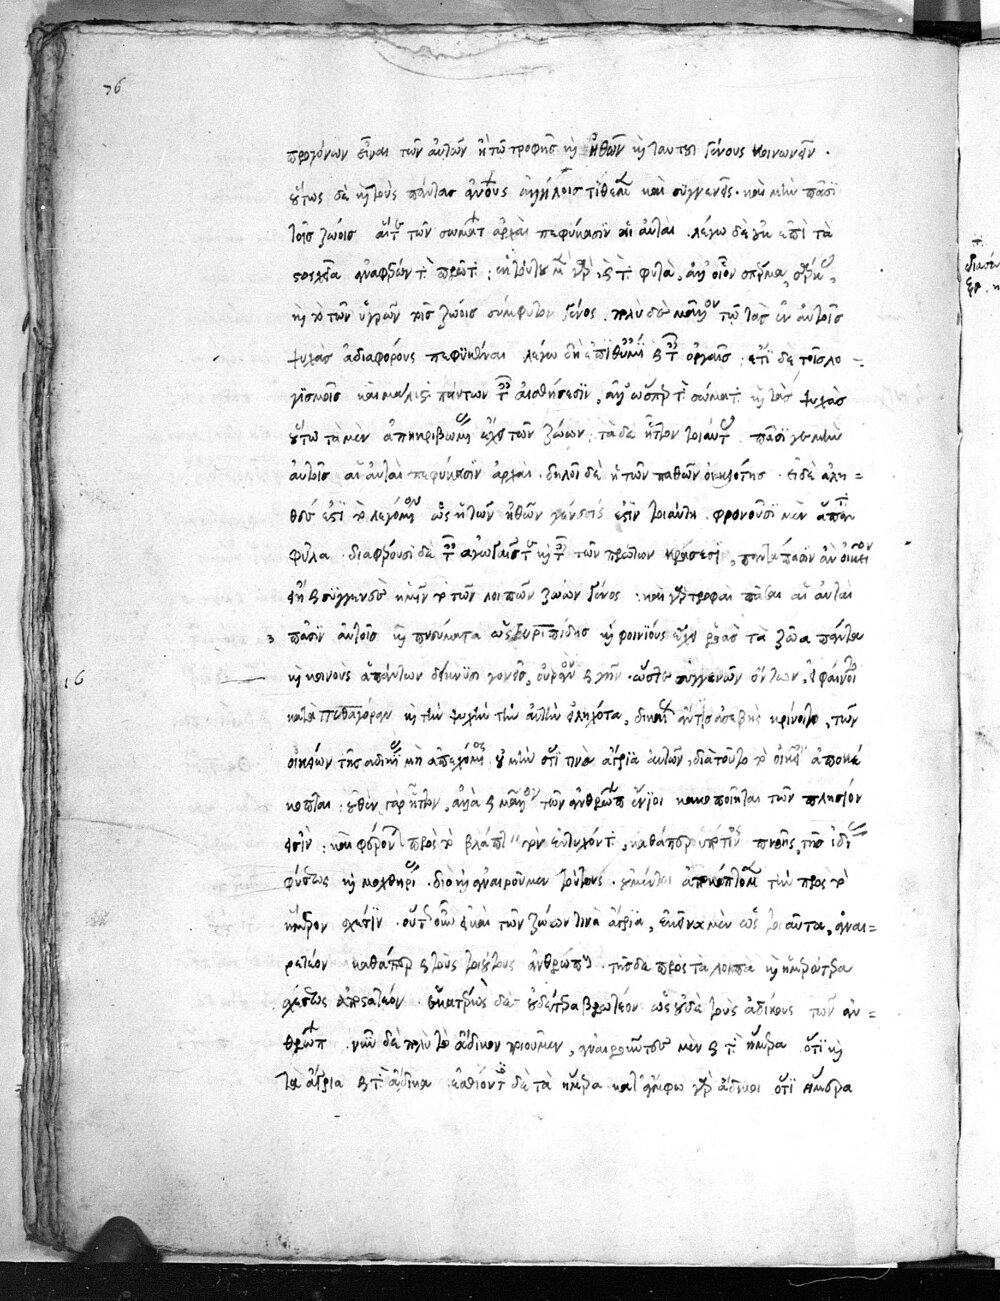 76
προγόνων εἶναι τῶν αὐτῶν ἢ τῷ τροφῆς καὶ ἠθῶν καὶ ταυτοῦ γένους κοινωνεῖν.
οὕτως δὲ καὶ τοὺς πάντας ἀνθρώπους ἀλλήλοις τίθεμεν καὶ συγγενεῖς. καὶ μὴν πᾶσι
τοῖς ζώοις αἵ τε τῶν σωμάτων ἀρχαὶ πεφύκασιν αἱ αὐταί. λέγω δὲ οὐκ ἐπὶ τὰ
στοιχεῖα ἀναφέρων τὰ πρῶτα. ἐκ τούτων μὲν γὰρ, καὶ τὰ φυτά, ἀλλ' οἷον σπέρμα, σάρκας,
καὶ τὸ τῶν ὑγρῶν τοῖς ζώοις σύμφυτον γένος. πολὺ δὲ μᾶλλον τῷ τὰς ἐν αὐτοῖς
ψυχὰς ἀδιαφόρους πεφυκέναι λέγω δὴ ἐπιθυμίαις καὶ ταῖς ὀργαῖς. ἔτι δὲ τοῖς λο=
γισμοῖς καὶ μάλιστα πάντων ταῖς αἰσθήσεσιν, ἀλλ' ὥσπερ τὰ σώματα καὶ τὰς ψυχὰς
οὕτω τὰ μὲν ἀπηκριβωμένας ἔχει τῶν ζώων. τὰ δὲ ἧττον τοιαύτας. πᾶσί γε μὴν
αὐτοῖς αἱ αὐταὶ πεφύκασιν ἀρχαί. δηλοῖ δὲ ἡ τῶν παθῶν οἰκειότης. εἰ δὲ ἀλη=
θές ἐστι τὸ λεγόμενον ὡς ἡ τῶν ἠθῶν γένεσίς ἐστιν τοιαύτη. φρονοῦσι μὲν ἅπαντα
φῦλα. διαφέρουσι δὲ ταῖς ἀγωγαῖς τε καὶ ταῖς τῶν πρώτων κράσεσι, παντάπασιν ἂν οἰκεῖον
εἴη καὶ συγγενὲς ἡμῖν τὸ τῶν λοιπῶν ζώων γένος. καὶ γὰρ τροφαὶ πᾶσαι αἱ αὐταὶ
3 πᾶσιν αὐτοῖς καὶ πνεύματα ὡς Εὐριπίδης καὶ φοινίους ἔχει ῥοὰς τὰ ζῶα πάντα
16 καὶ κοινοὺς ἁπάντων δείκνυσι γονεῖς, οὐρανὸν καὶ γῆν. ὥστε συγγενῶν ὄντων, εἰ φαίνοιτο
κατὰ Πυθαγόραν καὶ τὴν ψυχὴν τὴν αὐτὴν εἰληχότα, δικαίως ἄν τις ἀσεβὴς κρίνοιτο, τῶν
οἰκείων τῆς ἀδικίας μὴ ἀπεχόμενος. οὐ μὴν ὅτι τινα ἄγρια αὐτῶν, διὰ τοῦτο τὸ οἰκεῖον ἀποκέ
κοπται. οὐθὲν γὰρ ἧττον, ἀλλὰ καὶ μᾶλλον τῶν ἀνθρώπων ἔνιοι κακοποιηταὶ τῶν πλησίον
εἰσίν. καὶ φερόμενοι πρὸς τὸ βλάπτειν τὸν ἐντυχόντα, καθάπερ ὑπό τινος πνοῆς, τῆς ἰδίας
φύσεως καὶ μοχθηρίας. διὸ καὶ ἀναιροῦμεν τούτους. οὐ μέντοι ἀποκόπτομεν τὴν πρὸς τὸ
ἥμερον σχέσιν. οὕτως οὖν εἰ καὶ τῶν ζώων τινὰ ἄγρια, ἐκεῖνα μὲν ὡς τοιαῦτα, ἀναι=
ρετέον καθάπερ καὶ τοὺς τοιούτους ἀνθρώπους. τῆς δὲ πρὸς τὰ λοιπὰ καὶ ἡμερώτερα
σχέσεως οὐκ ἀποστατέον. ἑκατέρως δὲ οὐδέτερα βρωτέον ὡς οὐδὲ τοὺς ἀδίκους τῶν ἀν=
θρώπων. νῦν δὲ πολὺ τὸ ἄδικον ποιοῦμεν, ἀναιροῦντες μὲν καὶ τὰ ἥμερα ὅτι καὶ
τὰ ἄγρια καὶ τὰ ἄδικα ἐσθίοντες δὲ τὰ ἥμερα κατ' ἄμφω γὰρ ἄδικοι ὅτι ἥμερα